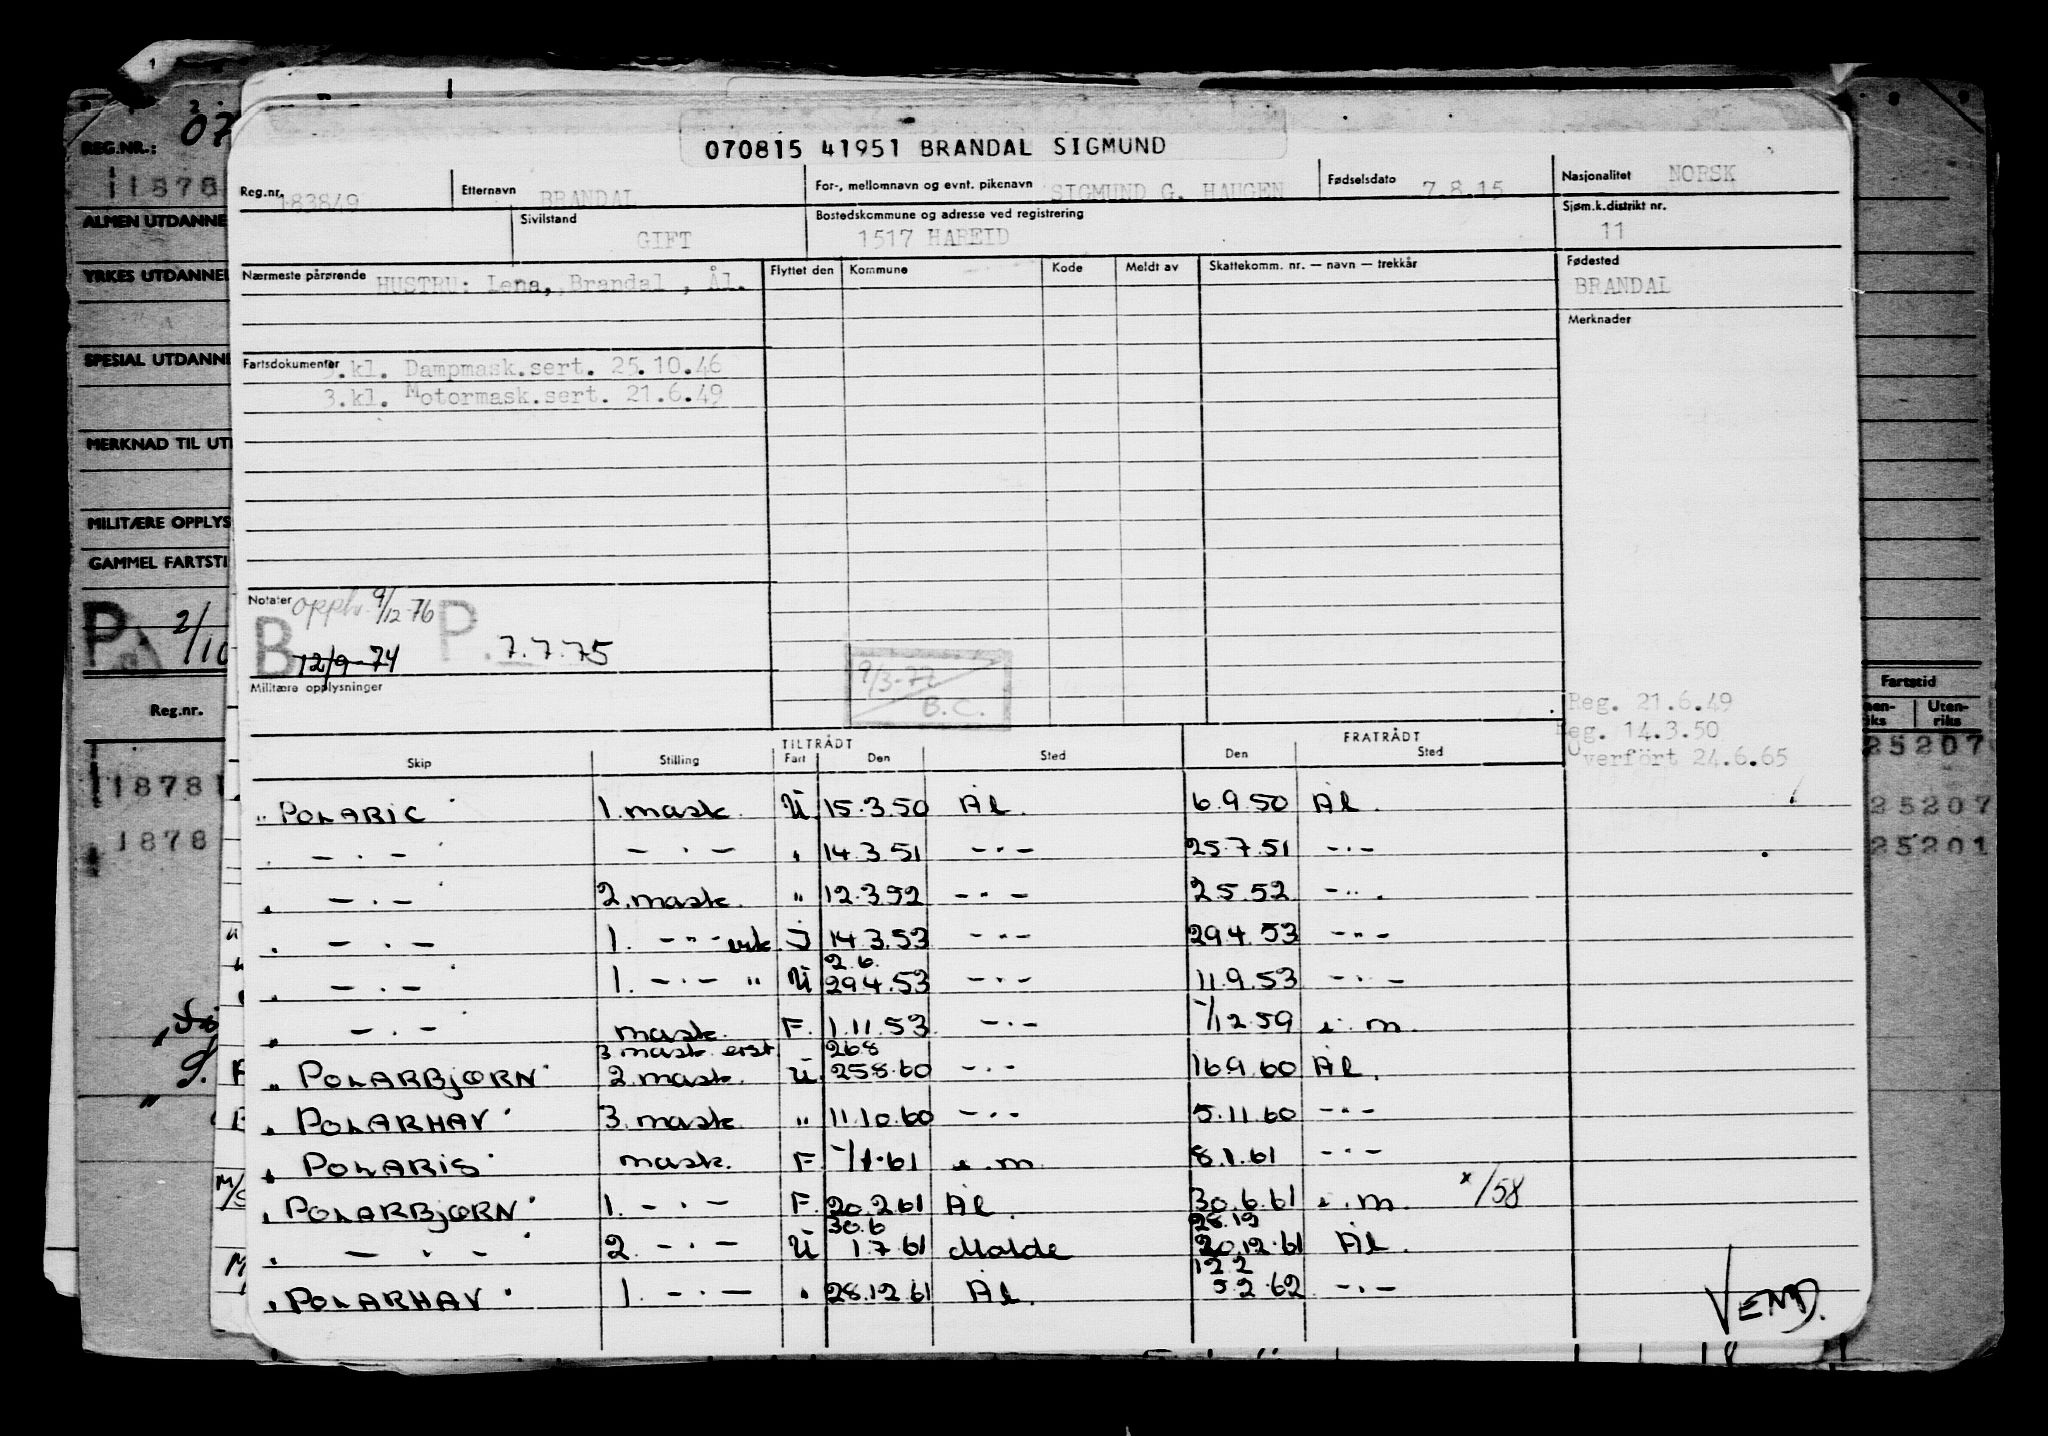 070815 41951 BRANDAL SIGMUND
Reg.nr. 183849 Etternavn BRANDAL For-, mellomnavn og evnt. pikenavn SIGMUND G. HAUGEN Fødselsdato 7.8.15 Nasjonalitet NORSK
Sivilstand GIFT Bostedskommune og adresse ved registrering 1517 HAREID Sjøm.k.distrikt nr. 11
Nærmeste pårørende HUSTRU: Lena, Brandal, Ål. Flyttet den Kommune Kode Meldt av Skattekomm. nr. — navn — trekkår Fødested BRANDAL
Merknader
Fartsdokumenter 3.kl. Dampmask.sert. 25.10.46
3.kl. Motormask.sert. 21.6.49
Notater opph. 9/12-76
B 12/9-74 P. 7.7.75
9/3-77
B.C.
Militære opplysninger
Reg. 21.6.49
Reg. 14.3.50
Overfört 24.6.65
TILTRÅDT FRATRÅDT
Skip Stilling Fart Den Sted Den Sted
" POLARIC " 1. mask. U 15.3.50 Ål. 6.9.50 Ål.
" — . — " — . — " 14.3.51 — . — 25.7.51 — . —
" — . — " 2. mask. " 12.3.52 — " — 2.5.52 — " .
" — . — 1. — " — erk. J 14.3.53 — " — 29.4.53 — " —
2.6.
" — . — " 1. — . — " U 29.4.53 — . — 11.9.53 — . —
" — . — " mask. F. 1.11.53 — . — -/12.59 e.m.
3 mask. erst 26.8
" POLARBJØRN " 2. mask. U 25.8.60 — . — 16.9.60 Ål.
" POLARHAV " 3. mask. " 11.10.60 — . — 5.11.60 — " —
" POLARIS " mask. F -/1.61 e.m. 8.1.61 — " —
" POLARBJØRN " 1. — . — F. 20.2.61 Ål. 30.6.61 e.m. x/58
30.6 28.12
" — . — " 2. — . — U 1.7.61 Molde 20.12.61 Ål.
12.2
" POLARHAV " 1. — . — " 28.12.61 Ål. 5.2.62 — . —
VEND.
REG.NR.: 07
11878
ALMEN UTDANNE
YRKES UTDANNEL
SPESIAL UTDANNE
MERKNAD TIL UT
MILITÆRE OPPLYS
GAMMEL FARTSTI
P 2/10
Reg.nr.
118781
1878
Fartstid
Uten-
riks
25207
25207
25201